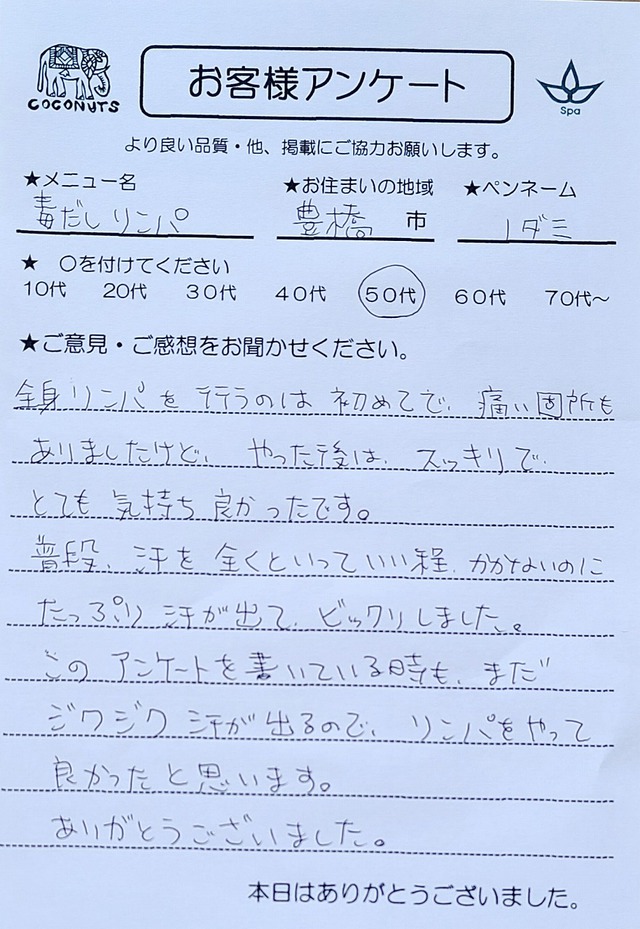 COCONUTS
お客様アンケート
Spa
より良い品質・他、掲載にご協力お願いします。
★メニュー名 ★お住まいの地域 ★ペンネーム
毒だしリンパ 豊橋 市 ノダミ
★ 〇を付けてください
10代 20代 30代 40代 50代 60代 70代～
★ご意見・ご感想をお聞かせください。
全身リンパを行うのは初めてで、痛い固所も
ありましたけど、やった後は、スッキリで、
とても気持ち良かったです。
普段、汗を全くといっていい程、かかないのに
たっぷり汗が出て、ビックリしました。
このアンケートを書いている時も、まだ
ジワジワ汗が出るので、リンパをやって
良かったと思います。
ありがとうございました。
本日はありがとうございました。